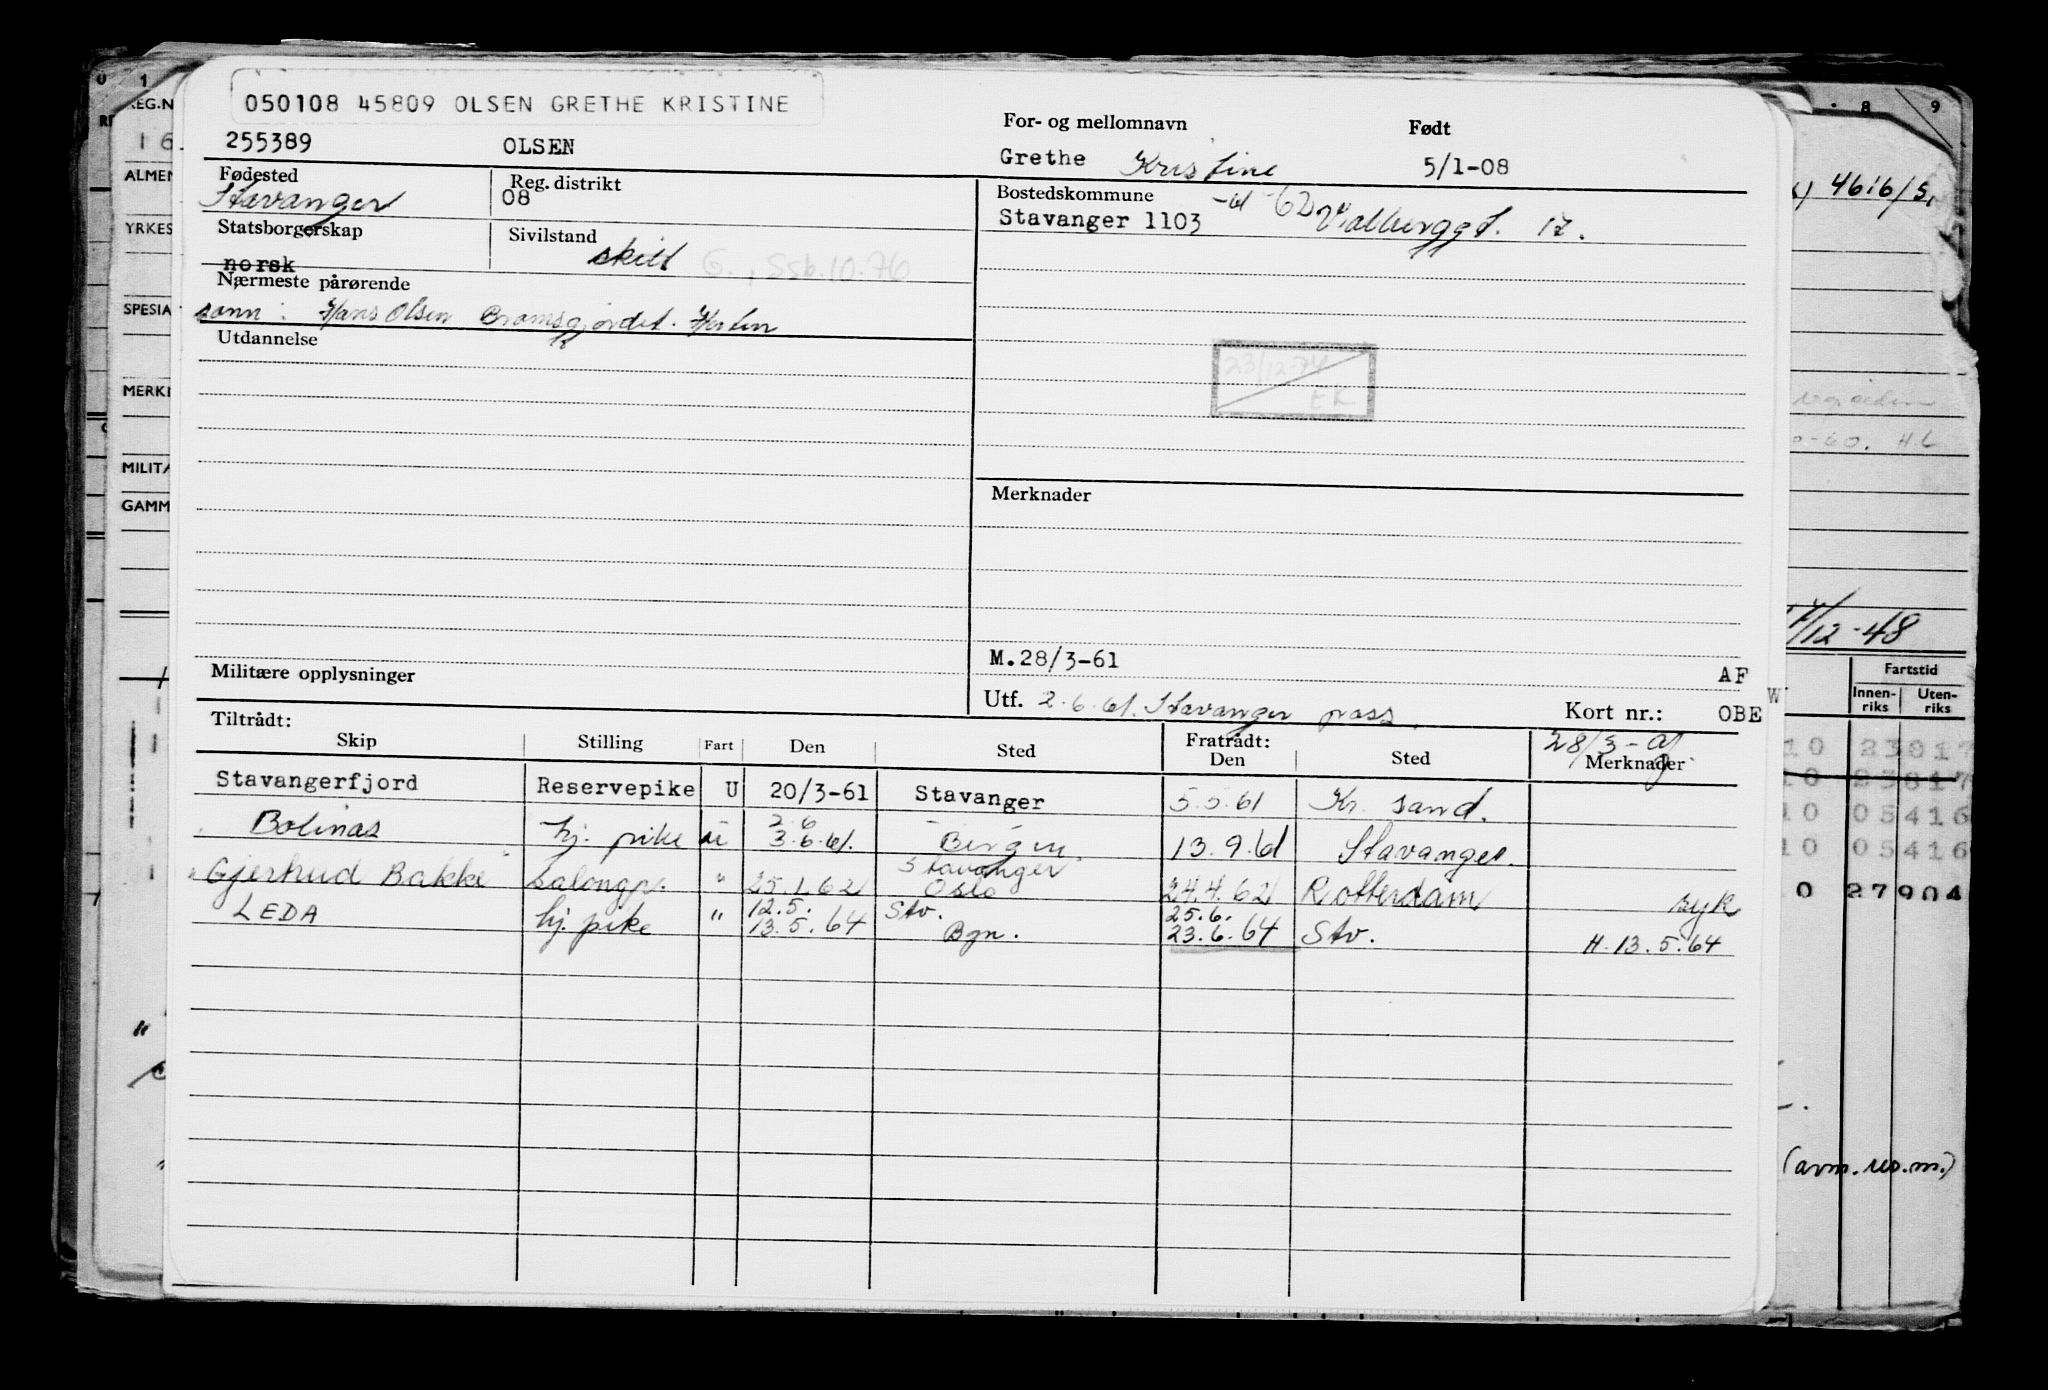 050108 45809 OLSEN GRETHE KRISTINE
255389 OLSEN
For- og mellomnavn Født
Grethe Kristine 5/1-08
Fødested Reg. distrikt
Stavanger 08
Statsborgerskap Sivilstand
norsk skilt
G., Ssb. 10.76
Bostedskommune
Stavanger 1103 -61 -62 Valberggt. 17.
Nærmeste pårørende
sønn: Hans Olsen
Utdannelse
23/12-74
EK
Merknader
M.28/3-61
AF
Militære opplysninger
Utf. 2.6.61. Stavanger pass.
Kort nr.: OBE W
Tiltrådt: Fratrådt: 28/3-
Skip Stilling Fart Den Sted Den Sted Merknader
Stavangerfjord Reservepike U 20/3-61 Stavanger 5.5.61 Kr. sand.
2.6
Bolinas hj. pike u 3.6.61. Bergen. 13.9.61 Stavanger.
Stavanger
Gjerhud Bakke Salongp. " 25.1.62 Oslo 24.4.62 Rotterdam syk
12.5. Stv. 25.6.
LEDA hj. pike " 13.5.64 Bgn. 23.6.64 Stv. H.13.5.64
0 1
REG.N
16
ALMEN
YRKES
SPESIA
MERKN
MILITÆ
GAMM
8 9
4616/S
0-60. H.L
/12-48
Fartstid
Innen-riks Uten-riks
10 23817
10 23817
10 05416
10 05416
0 27904
(arm. res. m.)